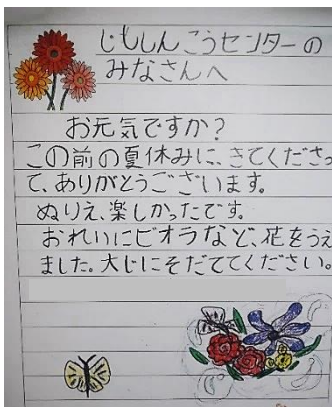 じもしんこうセンターの
みなさんへ
お元気ですか?
この前の夏休みに、きてくださっ
て、ありがとうございます。
ぬりえ、楽しかったです。
おれいにビオラなど、花をうえ
ました。大じにそだててください。